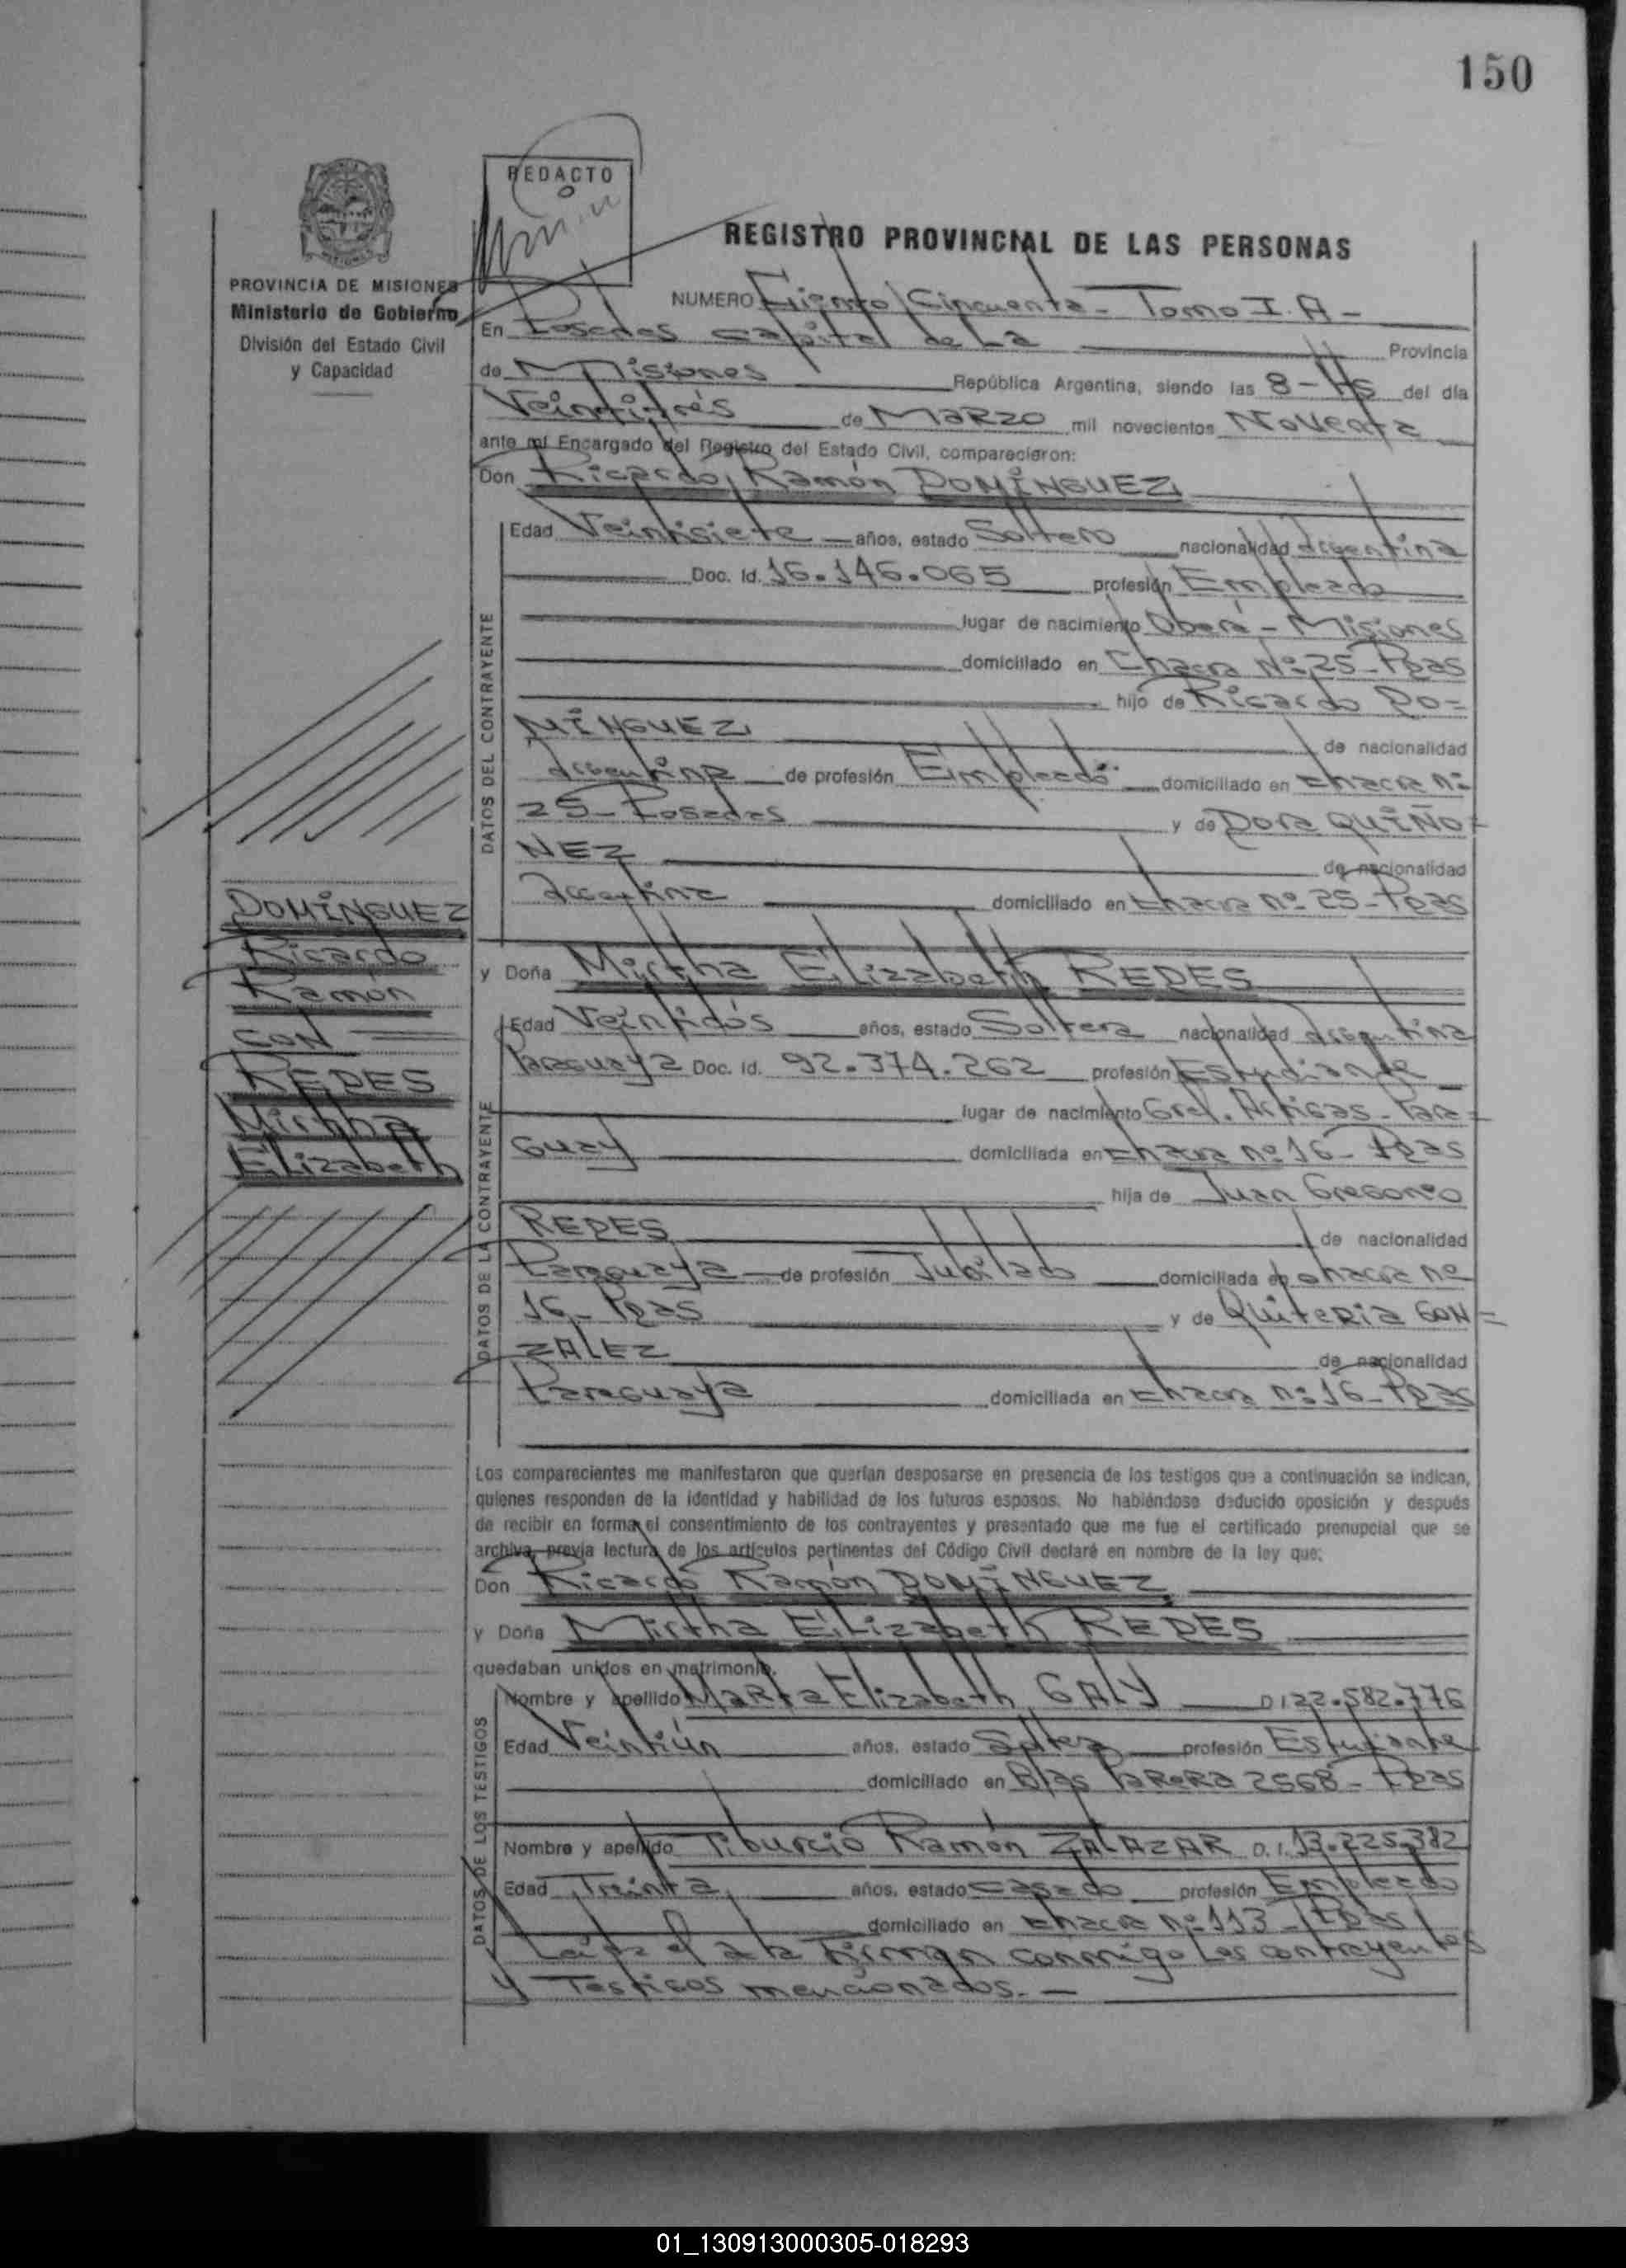 150
REDACTO
PROVINCIA DE MISIONES
Ministerio de Gobierno
División del Estado Civil
y Capacidad
REGISTRO PROVINCIAL DE LAS PERSONAS
NUMERO Ciento Cincuenta - Tomo I. A -
En Posadas capital de La Provincia
de Misiones República Argentina, siendo las 8 - Hs del día
Veintitrés de Marzo mil novecientos Noventa
ante mí Encargado del Registro del Estado Civil, comparecieron:
Don Ricardo Ramón DOMÍNGUEZ
DATOS DEL CONTRAYENTE
Edad Veintisiete años, estado Soltero nacionalidad argentina
Doc. Id. 16.146.065 profesión Empleado
lugar de nacimiento Oberá - Misiones
domiciliado en Chacra Nº 25 - Pdas
hijo de Ricardo DO=
MÍNGUEZ de nacionalidad
argentina de profesión Empleado domiciliado en chacra nº
25 - Posadas y de Dora QUIÑO=
NEZ de nacionalidad
argentina domiciliado en chacra nº 25 - Pdas
DOMÍNGUEZ
Ricardo
Ramón
CON
REDES
Mirtha
Elizabeth
y Doña Mirtha Elizabeth REDES
DATOS DE LA CONTRAYENTE
Edad Veintidós años, estado Soltera nacionalidad argentina
Paraguaya Doc. Id. 92.374.262 profesión Estudiante
lugar de nacimiento Gral. Artigas - Para=
guay domiciliada en chacra nº 16 - Pdas
hija de Juan Gregorio
REDES de nacionalidad
Paraguaya de profesión Jubilado domiciliada en chacra nº
16 - Pdas y de Quiteria GON=
ZALEZ de nacionalidad
Paraguaya domiciliada en chacra nº 16 - Pdas
Los comparecientes me manifestaron que querían desposarse en presencia de los testigos que a continuación se indican,
quienes responden de la identidad y habilidad de los futuros esposos. No habiéndose deducido oposición y después
de recibir en forma el consentimiento de los contrayentes y presentado que me fue el certificado prenupcial que se
archiva, previa lectura de los artículos pertinentes del Código Civil declaré en nombre de la ley que:
Don Ricardo Ramón DOMÍNGUEZ
y Doña Mirtha Elizabeth REDES
quedaban unidos en matrimonio.
DATOS DE LOS TESTIGOS
Nombre y apellido Marta Elizabeth GALY D.I 22.582.776
Edad Veintiún años, estado Soltera profesión Estudiante
domiciliado en Blas Parera 2568 - Pdas
Nombre y apellido Tiburcio Ramón ZALAZAR D.I. 13.225.382
Edad Treinta años, estado casado profesión Empleado
domiciliado en chacra nº 113 - Pdas
Leída el acta Firman conmigo Los contrayentes
y Testigos mencionados. -
01_130913000305-018293